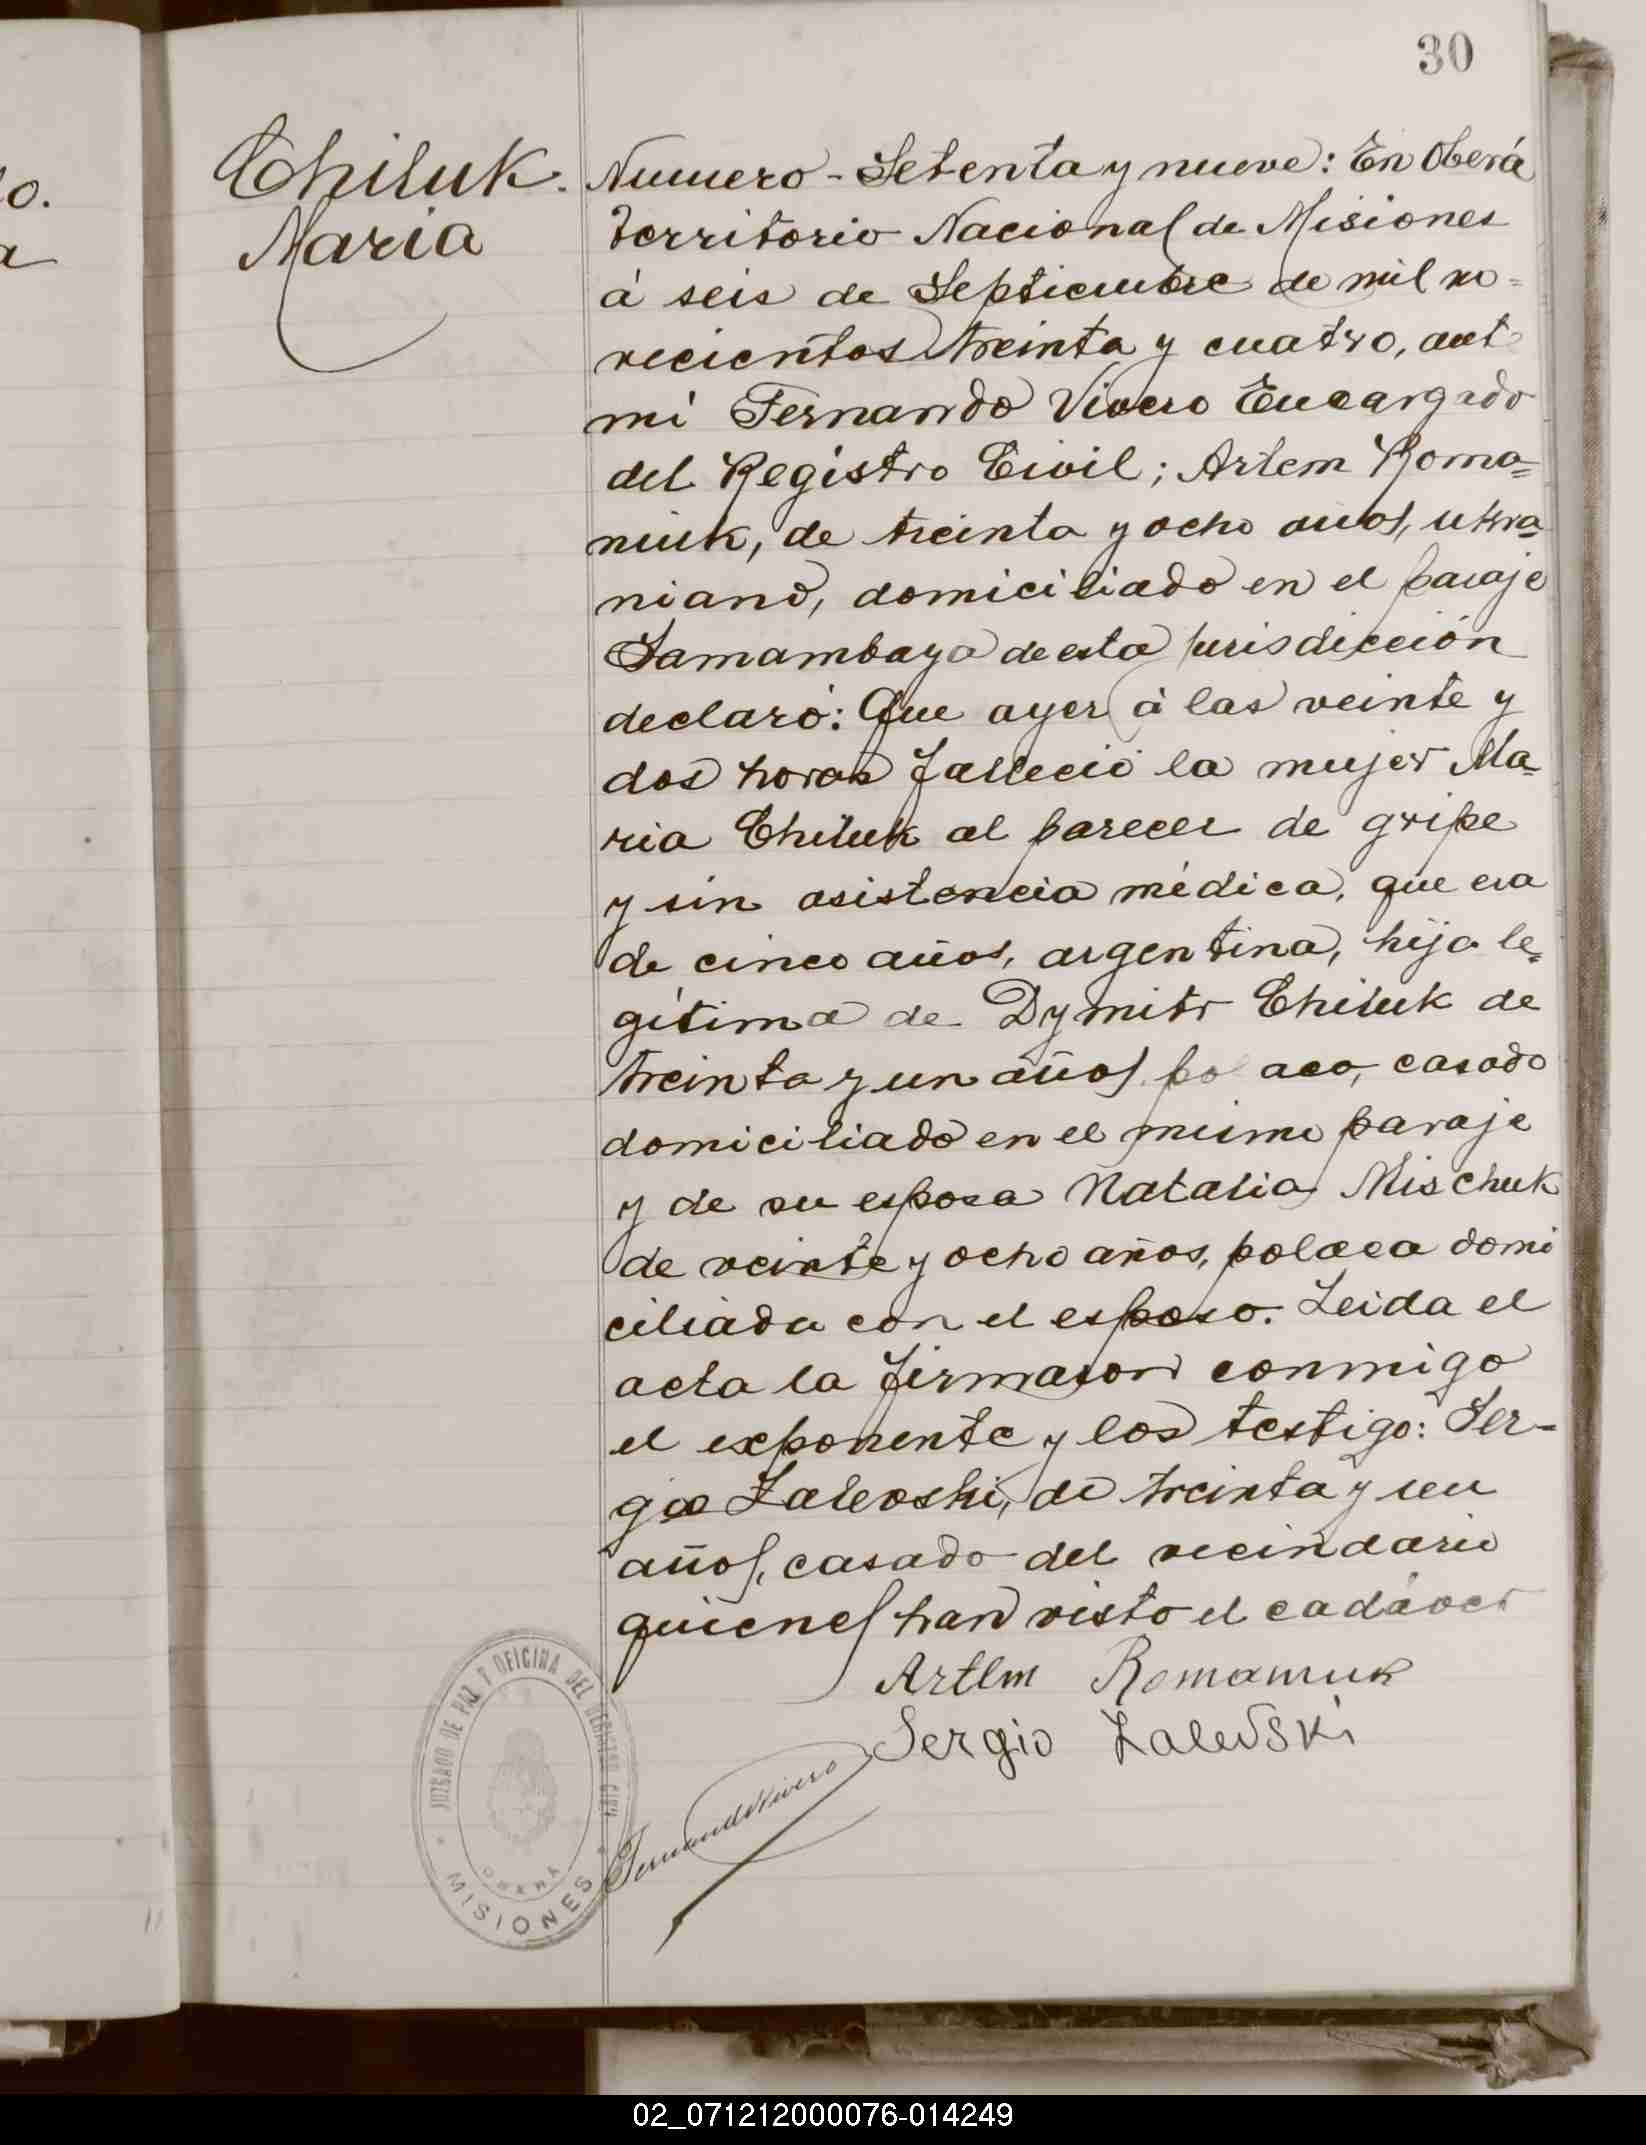 30
Chiluk.
Maria
o.
a
Numero - Setenta y nueve: En Oberá
Territorio Nacional de Misiones
á seis de Septiembre de mil no=
vecientos treinta y cuatro, ante
mi Fernando Vivero Encargado
del Registro Civil; Artem Roma=
niuk, de treinta y ocho años, ukra=
niano, domiciliado en el paraje
Samambaya de esta jurisdicción
declaró: Que ayer á las veinte y
dos horas falleció la mujer Ma=
ria Chiluk al parecer de gripe
y sin asistencia médica, que era
de cinco años, argentina, hija le=
gítima de Dymitr Chiluk de
treinta y un años, polaco, casado
domiciliado en el mismo paraje
y de su esposa Natalia Mischuk
de veinte y ocho años, polaca domi
ciliada con el esposo. Leida el
acta la firmaron conmigo
el exponente y los testigo: Ser=
gio Zalevski, de treinta y un
años, casado del vecindario
quienes han visto el cadáver
Artem Romaniuk
Sergio Zalevski
Fernando Vivero
JUZGADO DE PAZ Y OFICINA DEL REGISTRO CIVIL
OBERA
MISIONES
02_071212000076-014249